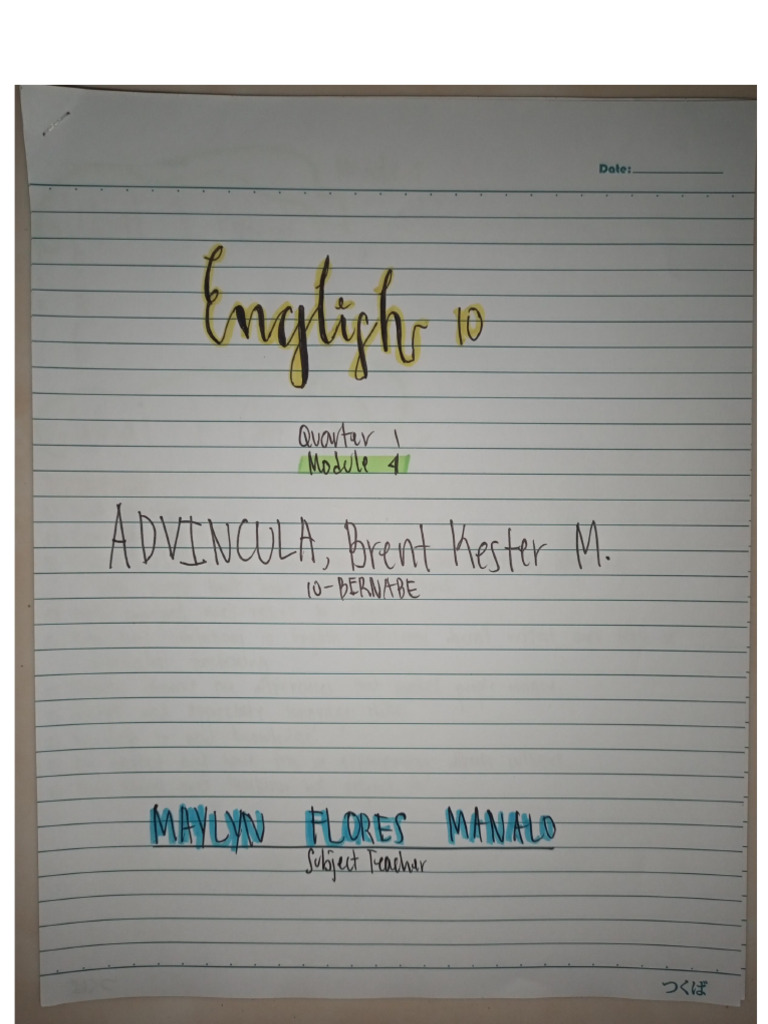 Date:
English 10
Quarter 1
Module 4
ADVINCULA, Brent Kester M.
10-BERNABE
MAYLYN FLORES MANALO
Subject Teacher
つくば